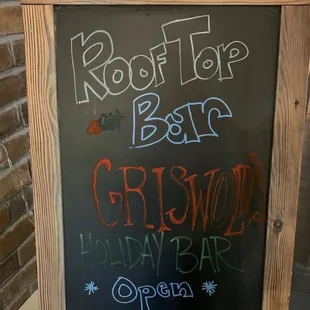 RoofTop
Bar
GRISWOLD'S
HOLIDAY BAR
* Open *